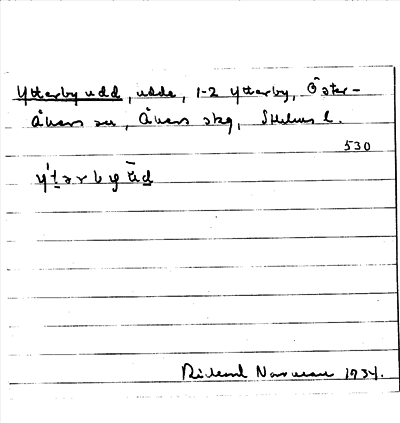 Ytterby udd, udde, 1-2 Ytterby, Öster-
åkers sn, Åkers skg, Sthlms l.
530
y't̠ərbyūd̠
Rickard Norman 1934.